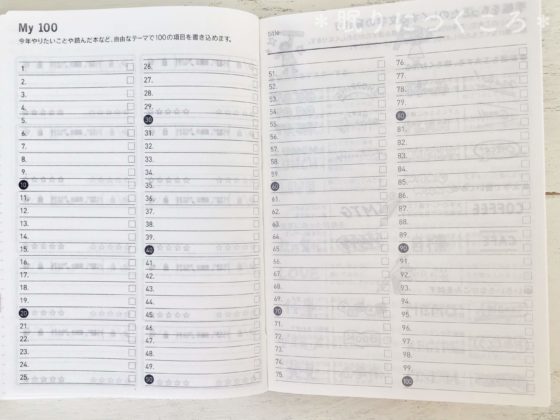 My 100
今年やりたいことや読んだ本など、自由なテーマで100の項目を書き込めます。
title
1.
2.
3.
4.
5.
6.
7.
8.
9.
10
11.
12.
13.
14.
15.
16.
17.
18.
19.
20
21.
22.
23.
24.
25.
26.
27.
28.
29.
30
31.
32.
33.
34.
35.
36.
37.
38.
39.
40
41.
42.
43.
44.
45.
46.
47.
48.
49.
50
51.
52.
53.
54.
55.
56.
57.
58.
59.
60
61.
62.
63.
64.
65.
66.
67.
68.
69.
70
71.
72.
73.
74.
75.
76.
77.
78.
79.
80
81.
82.
83.
84.
85.
86.
87.
88.
89.
90
91.
92.
93.
94.
95.
96.
97.
98.
99.
100